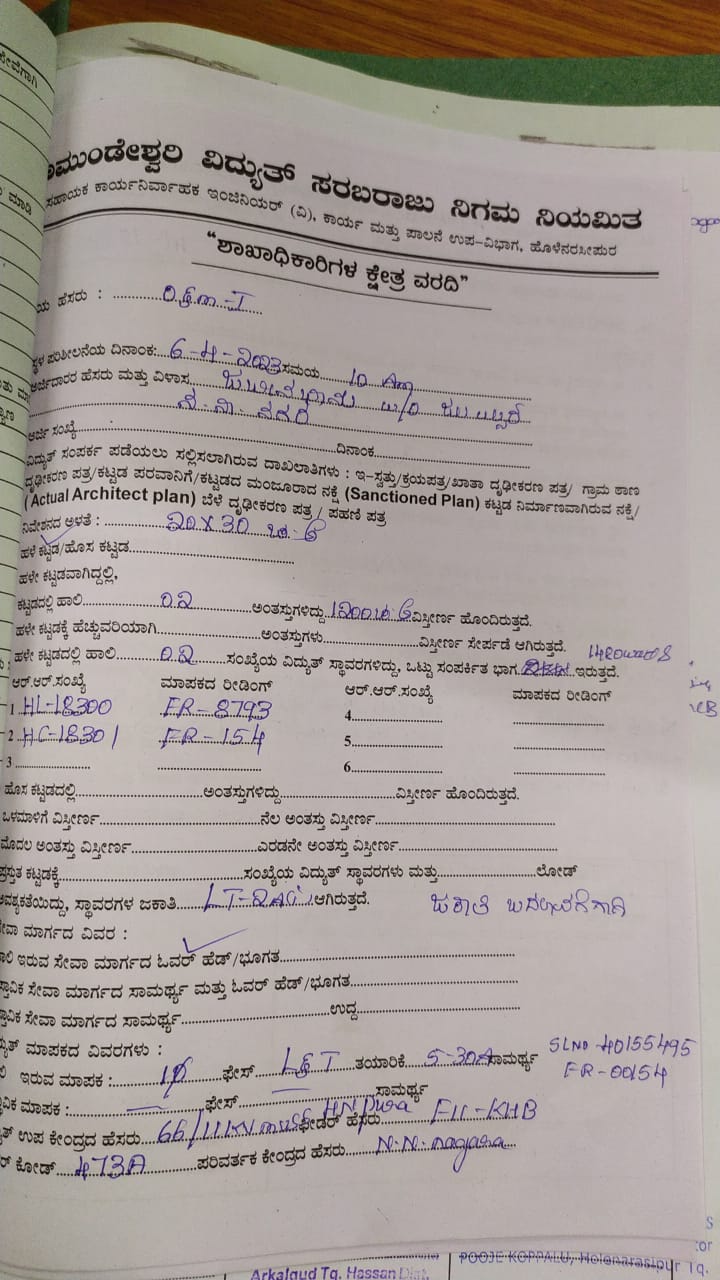 ಾಮುಂಡೇಶ್ವರಿ ವಿದ್ಯುತ್ ಸರಬರಾಜು ನಿಗಮ ನಿಯಮಿತ
ಸಹಾಯಕ ಕಾರ್ಯನಿರ್ವಾಹಕ ಇಂಜಿನಿಯರ್ (ವಿ), ಕಾರ್ಯ ಮತ್ತು ಪಾಲನೆ ಉಪ-ವಿಭಾಗ, ಹೊಳೆನರಸೀಪುರ
"ಶಾಖಾಧಿಕಾರಿಗಳ ಕ್ಷೇತ್ರ ವರದಿ"
ಯ ಹೆಸರು : ............
ಸ್ಥಳ ಪರಿಶೀಲನೆಯ ದಿನಾಂಕ: 6-4-2023 ಸಮಯ 10 Am
ಅರ್ಜಿದಾರರ ಹೆಸರು ಮತ್ತು ವಿಳಾಸ W/O
ನಗರ
ಅರ್ಜಿ ಸಂಖ್ಯೆ............ದಿನಾಂಕ............
ವಿದ್ಯುತ್ ಸಂಪರ್ಕ ಪಡೆಯಲು ಸಲ್ಲಿಸಲಾಗಿರುವ ದಾಖಲಾತಿಗಳು : ಇ-ಸ್ವತ್ತು/ಕ್ರಯಪತ್ರ/ಖಾತಾ ದೃಢೀಕರಣ ಪತ್ರ/ ಗ್ರಾಮ ಠಾಣ
ದೃಢೀಕರಣ ಪತ್ರ/ಕಟ್ಟಡ ಪರವಾನಿಗೆ/ಕಟ್ಟಡದ ಮಂಜೂರಾದ ನಕ್ಷೆ (Sanctioned Plan) ಕಟ್ಟಡ ನಿರ್ಮಾಣವಾಗಿರುವ ನಕ್ಷೆ/
(Actual Architect plan) ಬೆಳೆ ದೃಢೀಕರಣ ಪತ್ರ / ಪಹಣಿ ಪತ್ರ
ನಿವೇಶನದ ಅಳತೆ : 20 X 30 ಚ.ಅ
ಹಳೆ ಕಟ್ಟಡ/ಹೊಸ ಕಟ್ಟಡ............
ಹಳೇ ಕಟ್ಟಡವಾಗಿದ್ದಲ್ಲಿ,
ಕಟ್ಟಡದಲ್ಲಿ ಹಾಲಿ 02 ಅಂತಸ್ತುಗಳಿದ್ದು 1200 ಚ ಅ ವಿಸ್ತೀರ್ಣ ಹೊಂದಿರುತ್ತದೆ.
ಹಳೇ ಕಟ್ಟಡಕ್ಕೆ ಹೆಚ್ಚುವರಿಯಾಗಿ............ಅಂತಸ್ತುಗಳು............ವಿಸ್ತೀರ್ಣ ಸೇರ್ಪಡೆ ಆಗಿರುತ್ತದೆ.
1420watts
ಹಳೇ ಕಟ್ಟಡದಲ್ಲಿ ಹಾಲಿ 02 ಸಂಖ್ಯೆಯ ವಿದ್ಯುತ್ ಸ್ಥಾವರಗಳಿದ್ದು, ಒಟ್ಟು ಸಂಪರ್ಕಿತ ಭಾಗ ಇರುತ್ತದೆ.
ಆರ್.ಆರ್.ಸಂಖ್ಯೆ ಮಾಪಕದ ರೀಡಿಂಗ್ ಆರ್.ಆರ್.ಸಂಖ್ಯೆ ಮಾಪಕದ ರೀಡಿಂಗ್
1 HL-18300 FR-8793 4............
2 HC-18301 FR-154 5............
3............ 6............
ಹೊಸ ಕಟ್ಟಡದಲ್ಲಿ............ಅಂತಸ್ತುಗಳಿದ್ದು............ವಿಸ್ತೀರ್ಣ ಹೊಂದಿರುತ್ತದೆ.
ಒಳಮಾಳಿಗೆ ವಿಸ್ತೀರ್ಣ............ನೆಲ ಅಂತಸ್ತು ವಿಸ್ತೀರ್ಣ............
ಮೊದಲ ಅಂತಸ್ತು ವಿಸ್ತೀರ್ಣ............ಎರಡನೇ ಅಂತಸ್ತು ವಿಸ್ತೀರ್ಣ............
ಪ್ರಸ್ತುತ ಕಟ್ಟಡಕ್ಕೆ............ಸಂಖ್ಯೆಯ ವಿದ್ಯುತ್ ಸ್ಥಾವರಗಳು ಮತ್ತು............ಲೋಡ್
ಅವಶ್ಯಕತೆಯಿದ್ದು, ಸ್ಥಾವರಗಳ ಜಕಾತಿ ಆಗಿರುತ್ತದೆ. ಜಕಾತಿ ಬದಲಾವಣೆಗಾಗಿ
ಸೇವಾ ಮಾರ್ಗದ ವಿವರ :
ಾಲಿ ಇರುವ ಸೇವಾ ಮಾರ್ಗದ ಓವರ್ ಹೆಡ್/ಭೂಗತ............
ಸ್ತಾವಿಕ ಸೇವಾ ಮಾರ್ಗದ ಸಾಮರ್ಥ್ಯ ಮತ್ತು ಓವರ್ ಹೆಡ್/ಭೂಗತ............
ಸ್ತಾವಿಕ ಸೇವಾ ಮಾರ್ಗದ ಸಾಮರ್ಥ್ಯ............ಉದ್ದ............
ದ್ಯುತ್ ಮಾಪಕದ ವಿವರಗಳು : SLNO 40155495
ಇರುವ ಮಾಪಕ : 1φ ಫೇಸ್ L&T ತಯಾರಿಕೆ 5-30A ಸಾಮರ್ಥ್ಯ FR-00154
ವಿಕ ಮಾಪಕ : — ಫೇಸ್ — ಸಾಮರ್ಥ್ಯ
ತ್ ಉಪ ಕೇಂದ್ರದ ಹೆಸರು 66/11KV muss HNpura ಫೀಡರ್ ಹೆಸರು F11-KHB
ರ್ ಕೋಡ್ 473A ಪರಿವರ್ತಕ ಕೇಂದ್ರದ ಹೆಸರು N.N. nagara
Arkalgud Tq. Hassan Dist.
POOJE KOPPALU, Holenarasipur Tq.